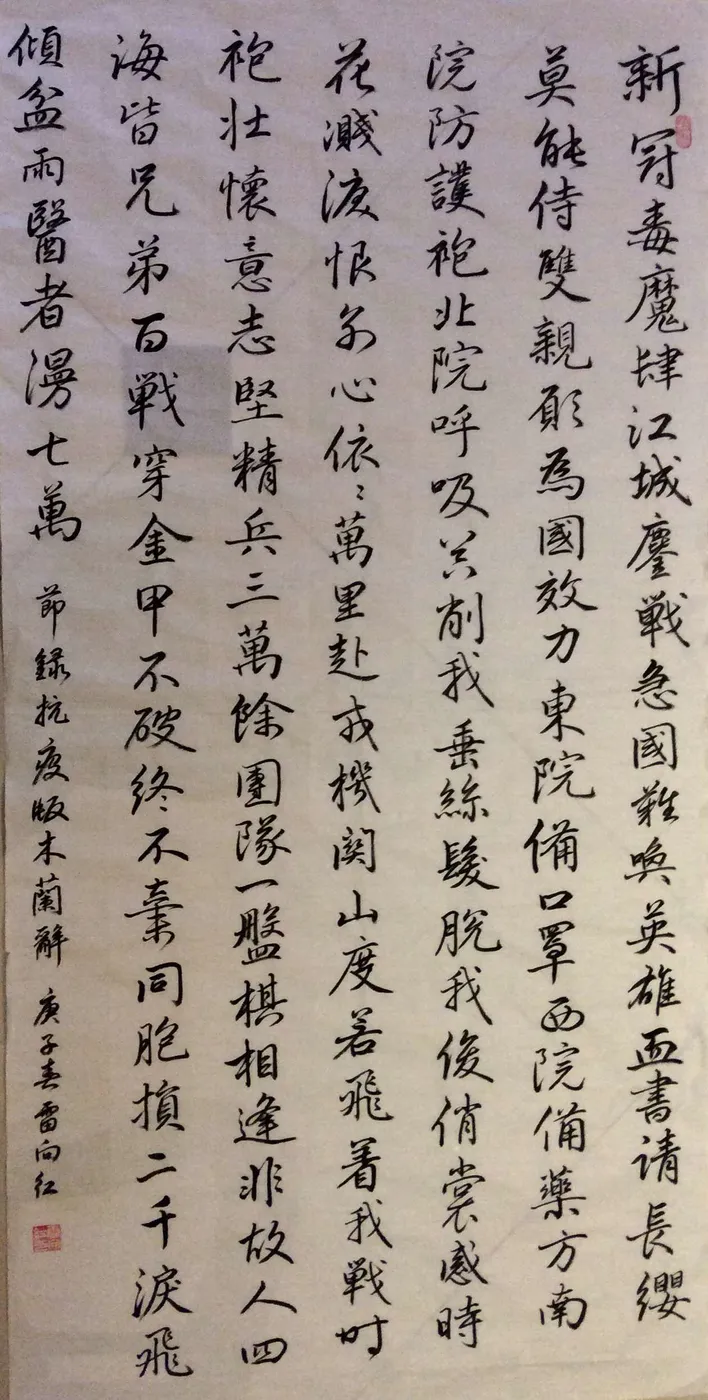 新冠毒魔肆江城鏖戰急國難喚英雄血書請長纓
莫能侍雙親願為國效力東院備口罩西院備藥方南
院防護袍北院呼吸器削我垂絲髮脫我俊俏裳感時
花濺淚恨別心依〻萬里赴戎機關山度若飛着我戰時
袍壯懷意志堅精兵三萬餘團隊一盤棋相逢非故人四
海皆兄弟百戰穿金甲不破終不棄同胞損二千淚飛
傾盆雨醫者漫七萬
節錄抗疫版木蘭辭 庚子春雷向紅